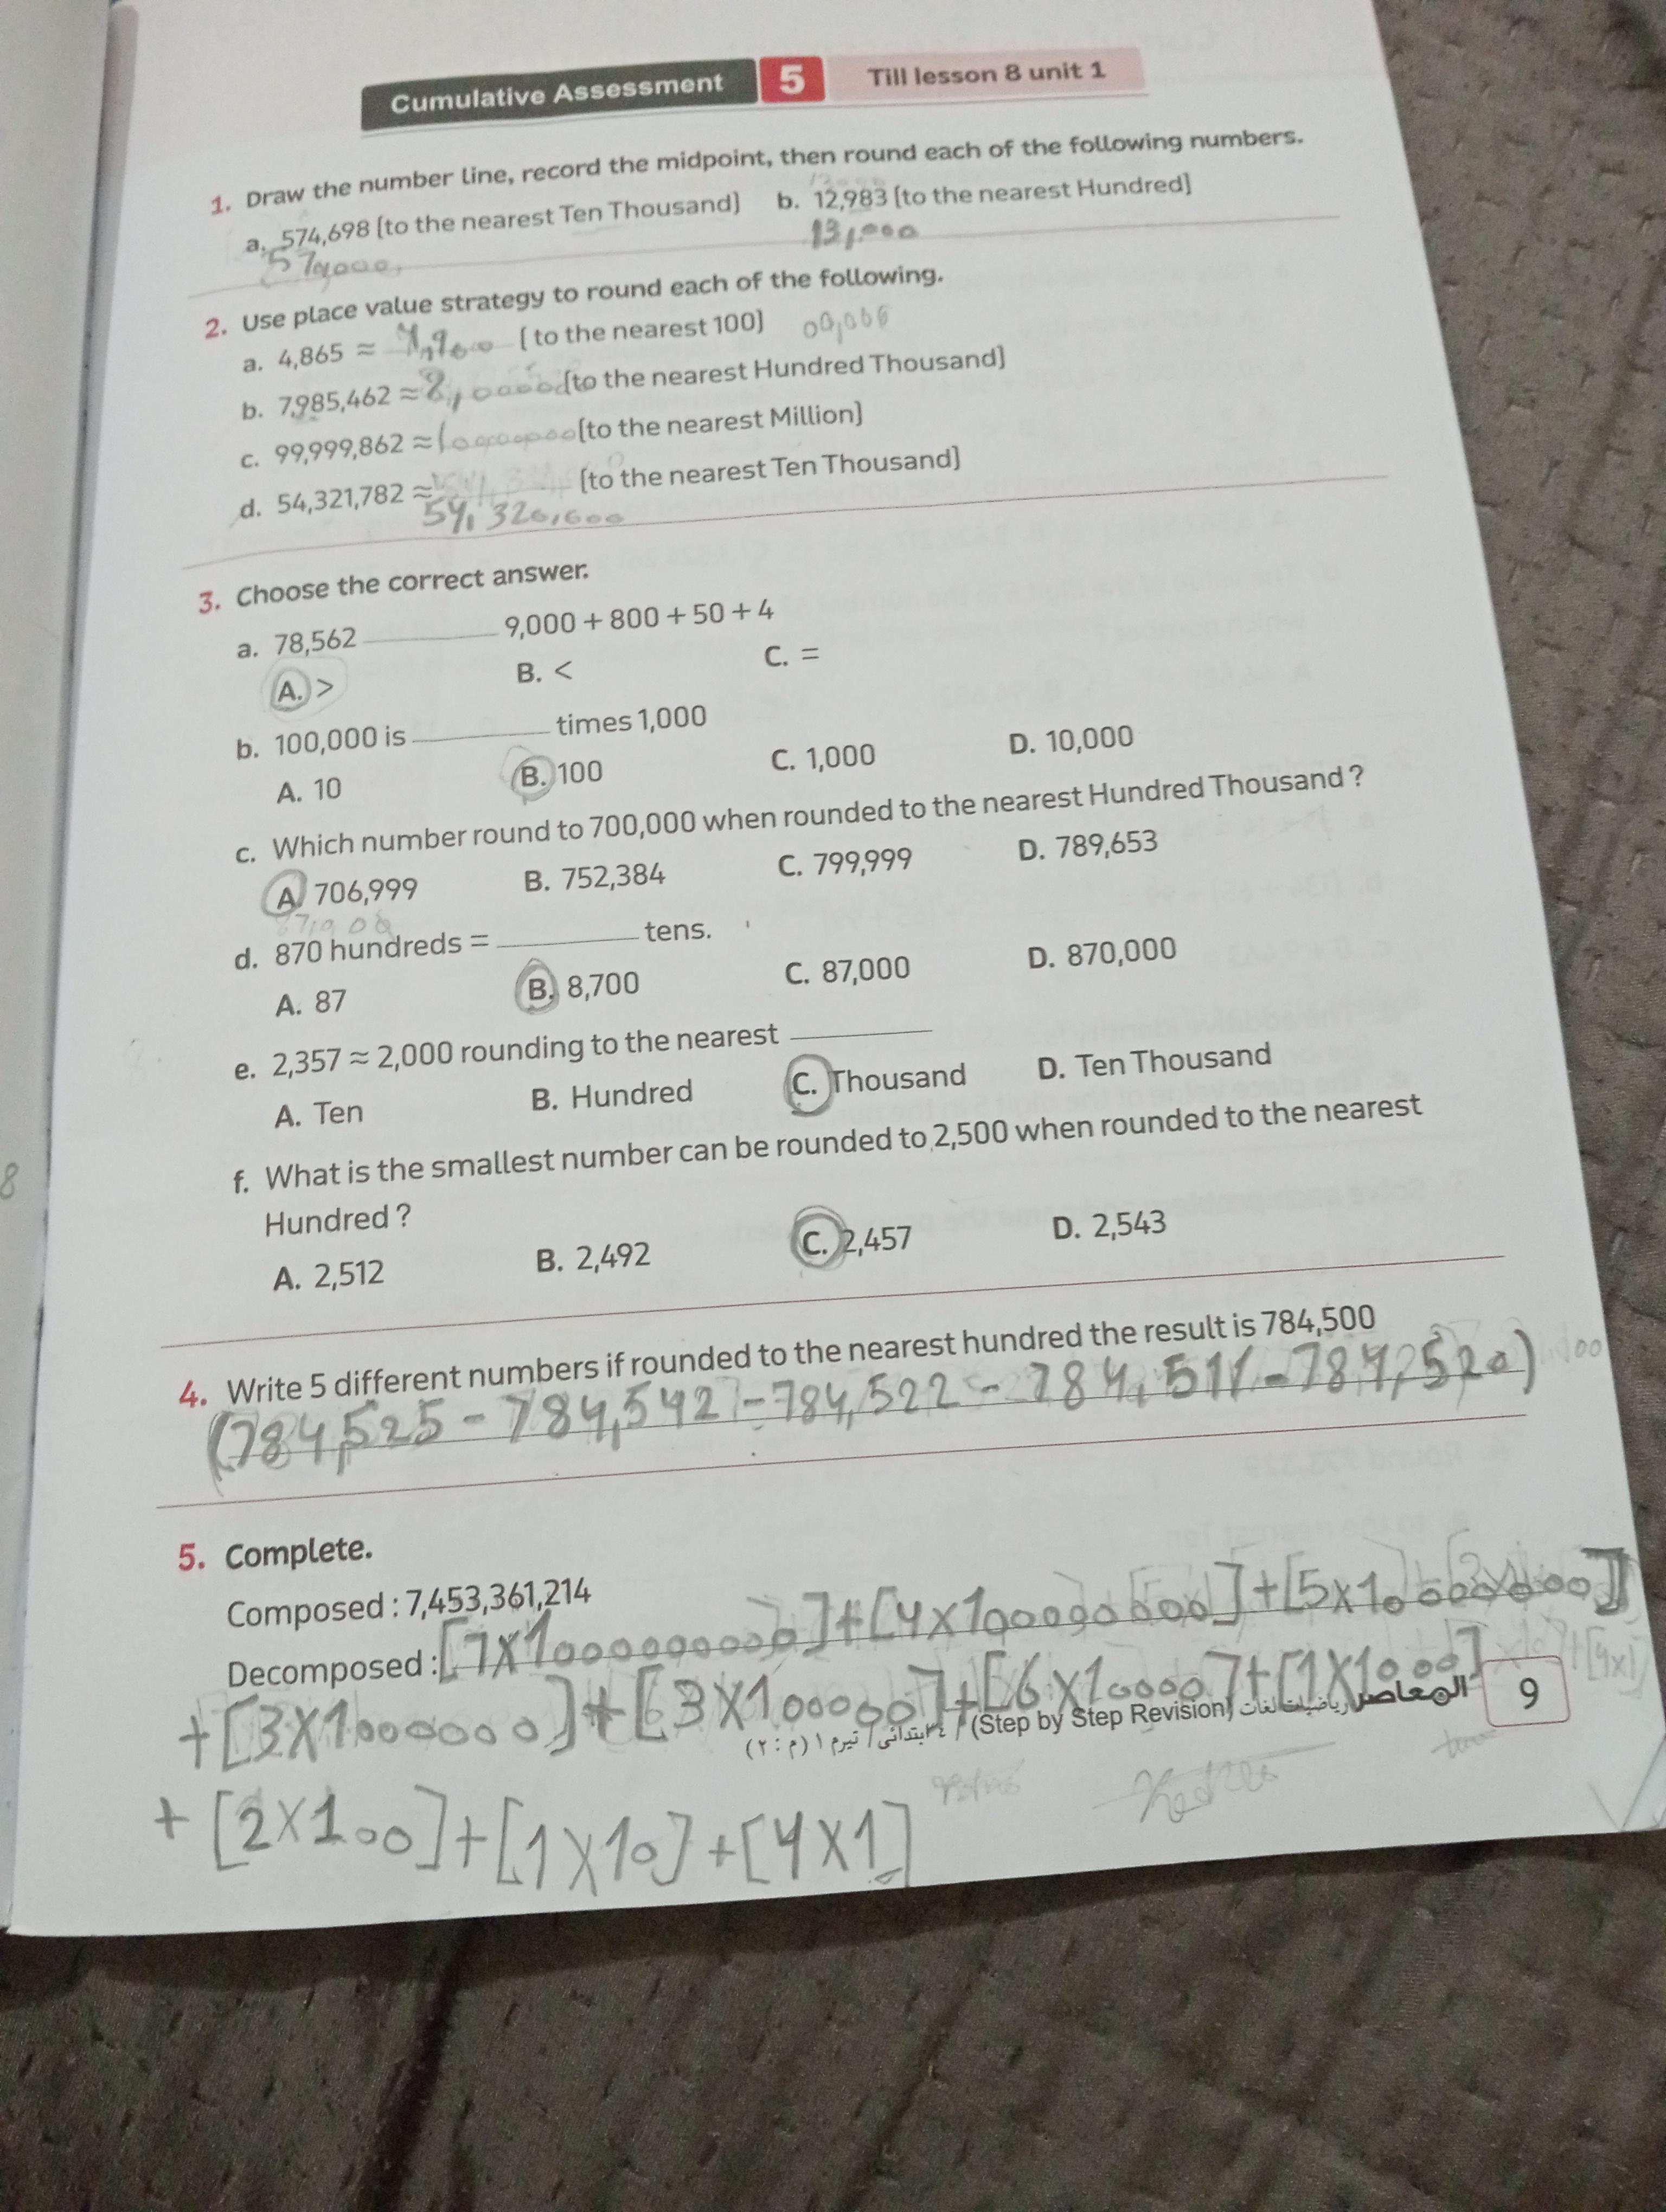 Cumulative Assessment 5 Till lesson 8 unit 1
1. Draw the number line, record the midpoint, then round each of the following numbers.
a. 574,698 (to the nearest Ten Thousand) b. 12,983 (to the nearest Hundred)
13,000
2. Use place value strategy to round each of the following.
a. 4,865 ≈ (to the nearest 100)
b. 7,985,462 ≈ (to the nearest Hundred Thousand)
c. 99,999,862 ≈ (to the nearest Million)
d. 54,321,782 ≈ (to the nearest Ten Thousand)
3. Choose the correct answer.
a. 78,562 ________ 9,000 + 800 + 50 + 4
A. > B. < C. =
b. 100,000 is ________ times 1,000
A. 10 B. 100 C. 1,000 D. 10,000
c. Which number round to 700,000 when rounded to the nearest Hundred Thousand ?
A. 706,999 B. 752,384 C. 799,999 D. 789,653
d. 870 hundreds = ________ tens.
A. 87 B. 8,700 C. 87,000 D. 870,000
e. 2,357 ≈ 2,000 rounding to the nearest ________
A. Ten B. Hundred C. Thousand D. Ten Thousand
f. What is the smallest number can be rounded to 2,500 when rounded to the nearest
Hundred ?
A. 2,512 B. 2,492 C. 2,457 D. 2,543
4. Write 5 different numbers if rounded to the nearest hundred the result is 784,500
(784,525 - 784,542 - 784,522 - 784,511 - 784,520)
5. Complete.
Composed : 7,453,361,214
Decomposed : [7x1000000000]+[4x100000000]+[5x10000000]
+[3x1000000]+[3x100000]+[6x10000]+[1x1000]
المعاصر رياضيات لغات (Step by Step Revision) / ٤ ابتدائى / تيرم ١ (م : ٢) 9
+[2x100]+[1x10]+[4x1]